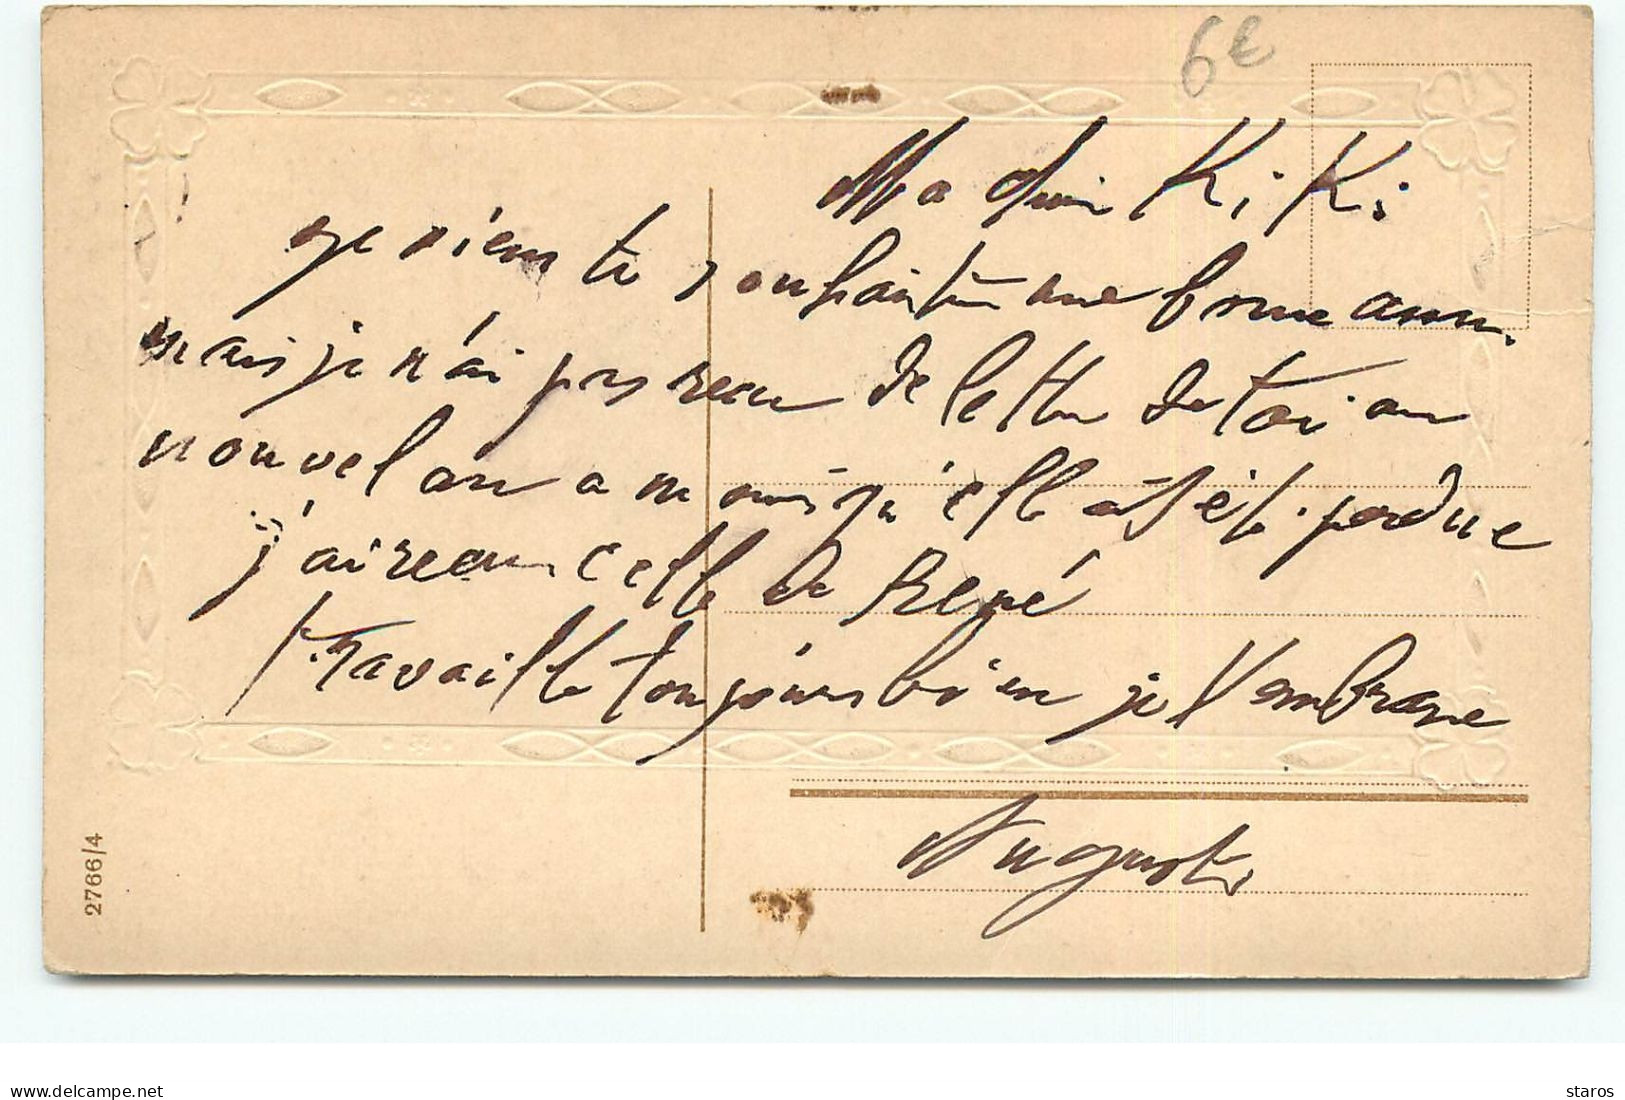 6€
Ma Kiki
je viens te souhaiter une bonne ann
mais je n'ai pas recu de lettre de toi au
nouvel an a moins qu'elle ait été perdue
j'ai recu celle de René
travaille toujours bien je t'embrasse
Auguste
2766/4
www.delcampe.net
staros